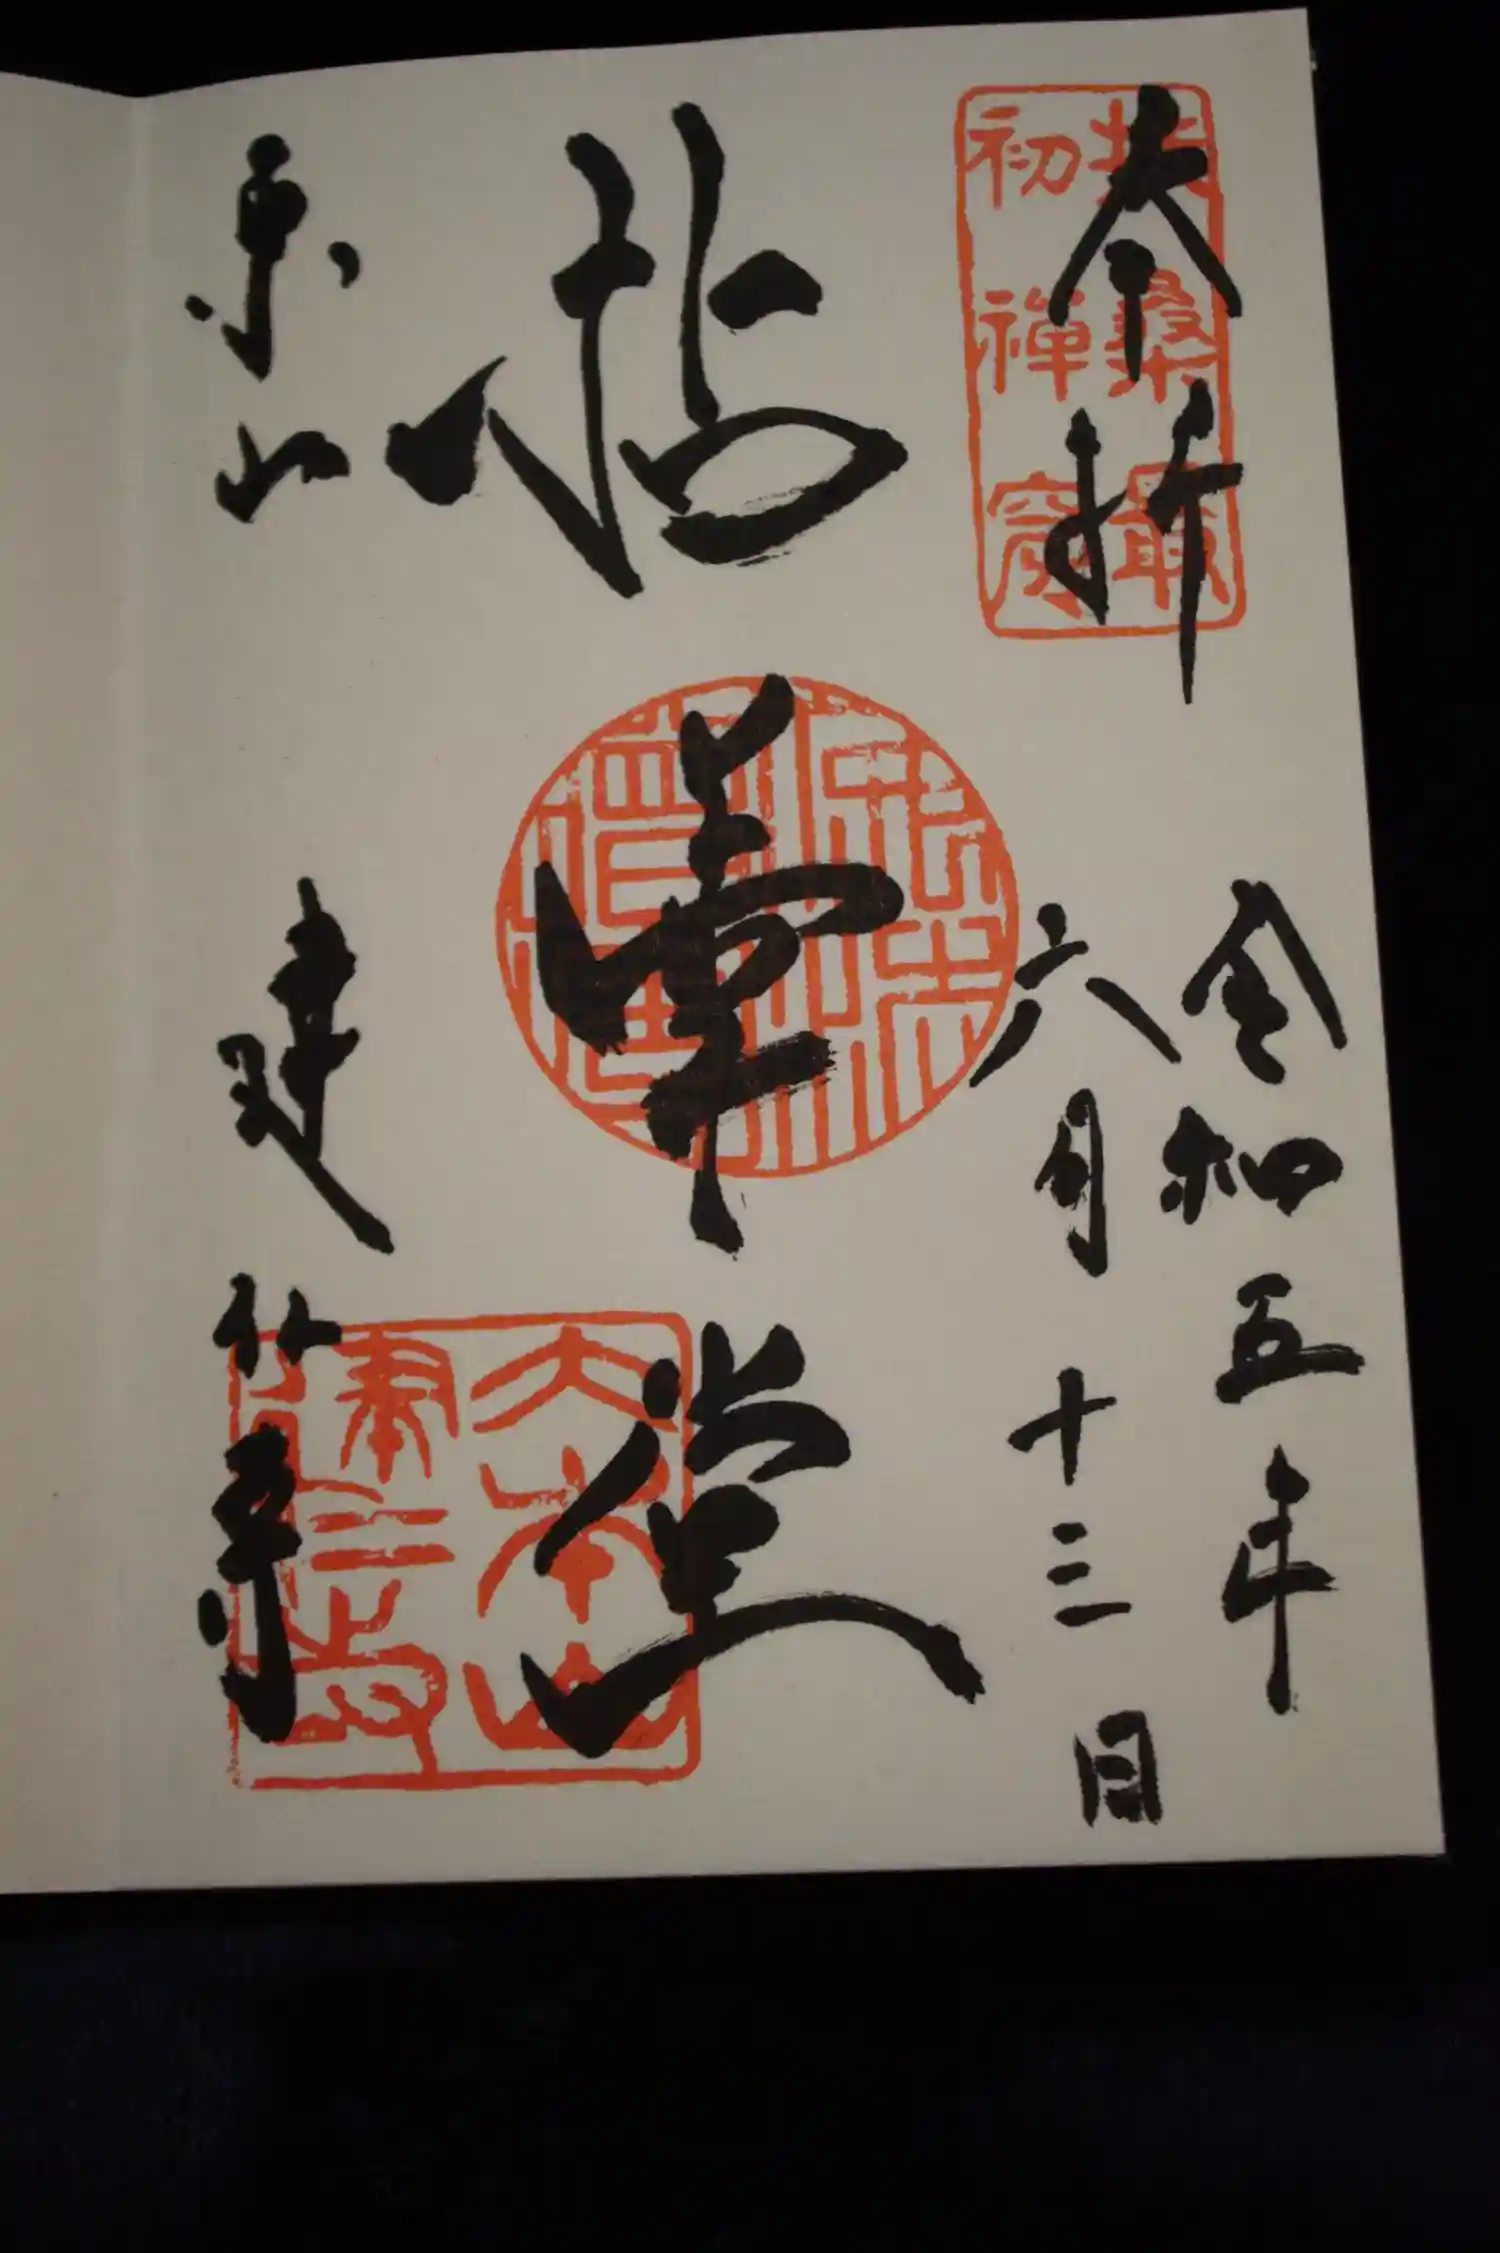 奉拝
扶桑最
初禪窟
令和五年
六月十三日
拈華堂
東山
建仁寺
大本山
建仁寺